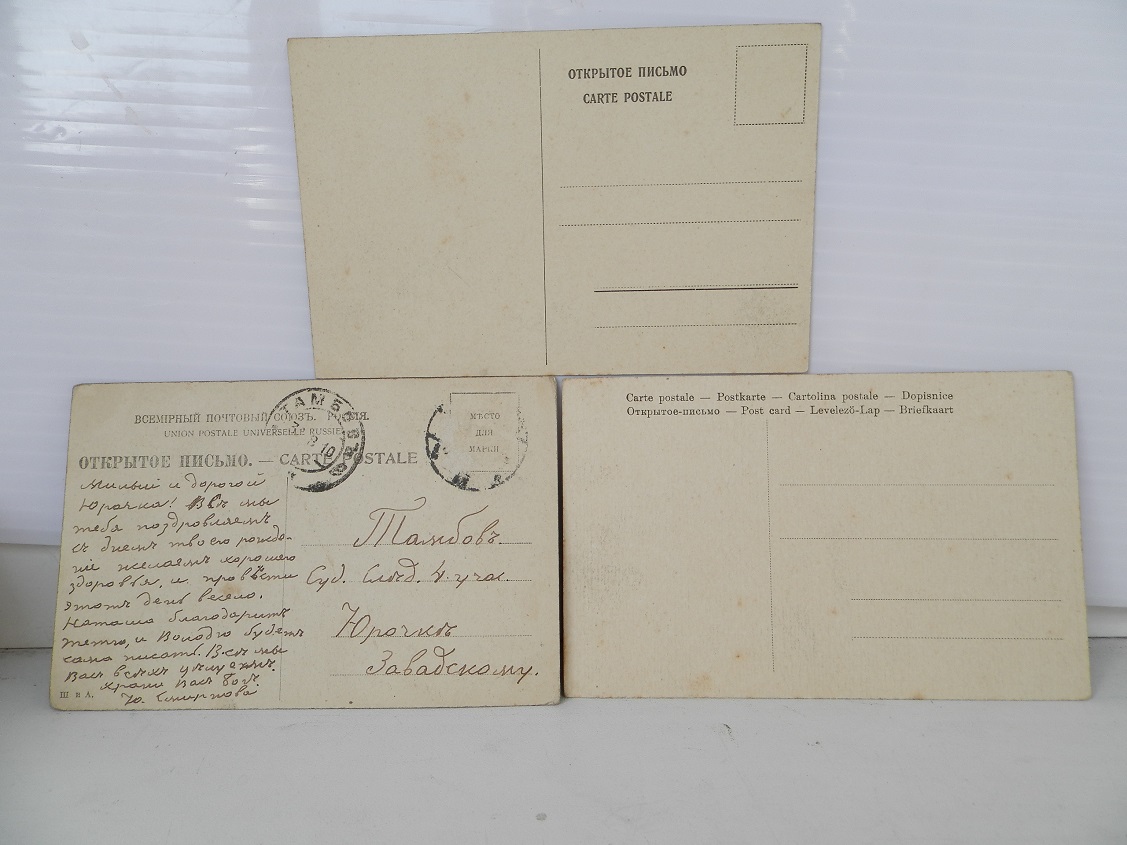 ОТКРЫТОЕ ПИСЬМО
CARTE POSTALE
ВСЕМІРНЫЙ ПОЧТОВЫЙ СОЮЗЪ. РОССІЯ.
UNION POSTALE UNIVERSELLE RUSSIE
ОТКРЫТОЕ ПИСЬМО. — CARTE POSTALE
ТАМБОВЪ
8 10
МѢСТО
ДЛЯ
МАРКИ
Милый и дорогой
Юрочка! Всѣ мы
тебя поздровляемъ
съ днемъ твоего рожде-
нія желаемъ хорошего
здоровья, и провѣсти
этотъ день весело.
Наташа благодаритъ
тетю, и Володю будетъ
сама писать. Всѣ мы
Васъ всѣхъ цѣлуемъ.
Храни Васъ Богъ.
Ю. Смирнова
Ш и А.
Тамбовъ.
Суд. Слѣд. 4. учас.
Юрочкѣ
Завадскому.
Carte postale — Postkarte — Cartolina postale — Dopisnice
Открытое-письмо — Post card — Levelező-Lap — Briefkaart